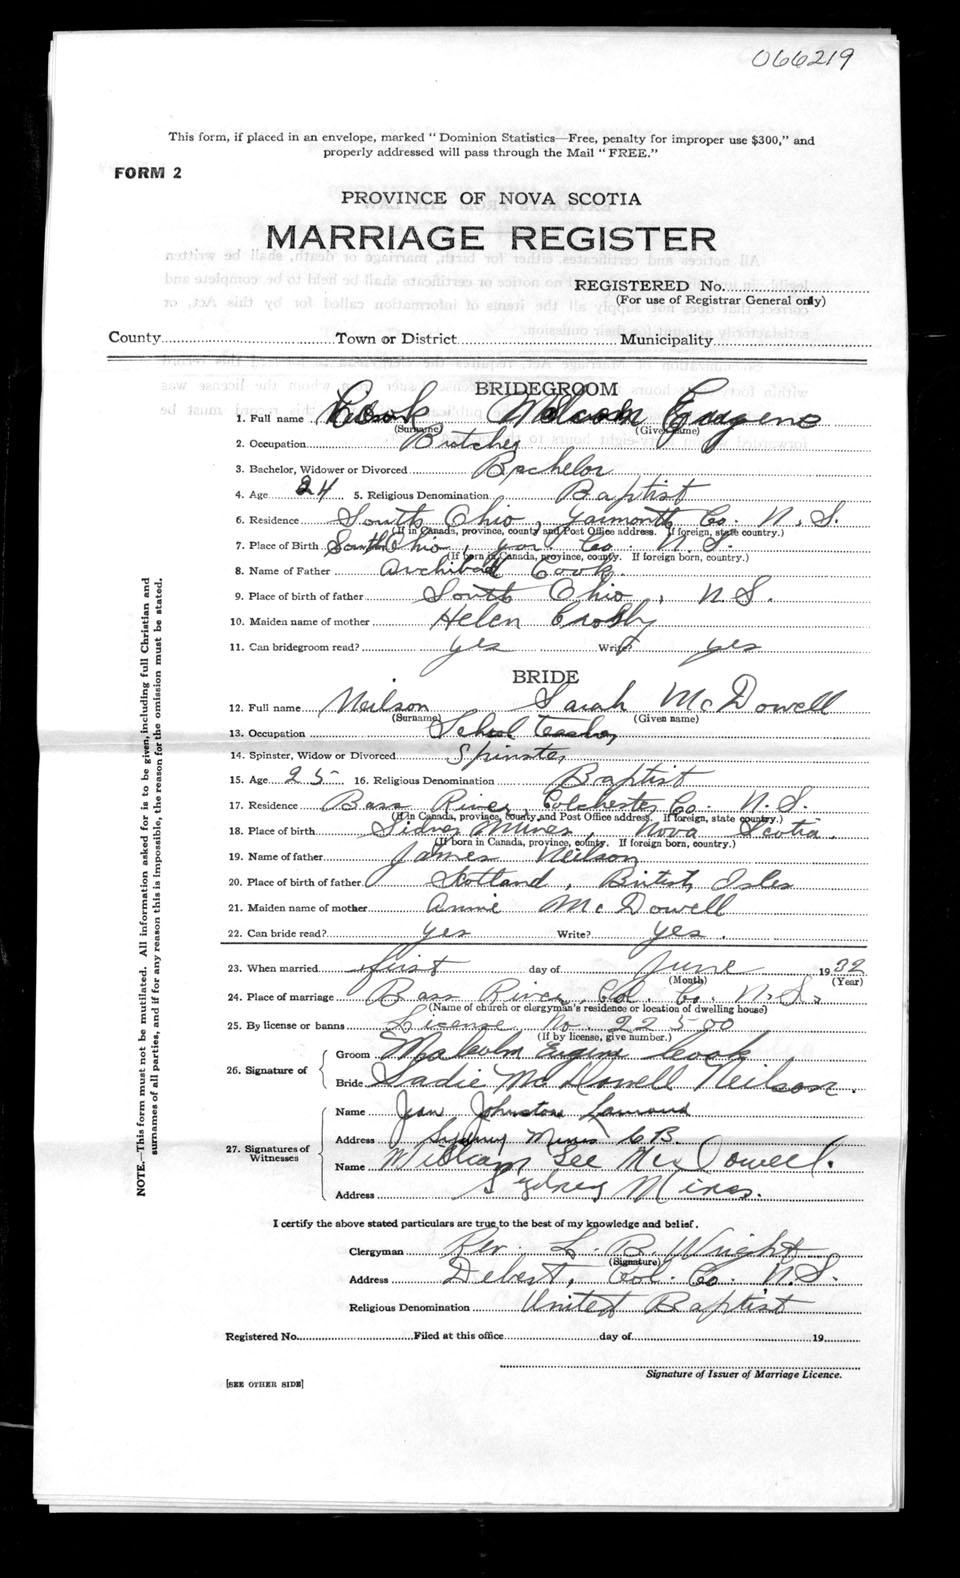 066219
This form, if placed in an envelope, marked "Dominion Statistics—Free, penalty for improper use $300," and
properly addressed will pass through the Mail "FREE."
FORM 2
PROVINCE OF NOVA SCOTIA
MARRIAGE REGISTER
REGISTERED No.
(For use of Registrar General only)
County Town or District Municipality
BRIDEGROOM
1. Full name Cook Malcolm Eugene
(Surname) (Given name)
2. Occupation Butcher
3. Bachelor, Widower or Divorced Bachelor
4. Age 24 5. Religious Denomination Baptist
6. Residence South Ohio, Yarmouth Co. N.S.
(If in Canada, province, county and Post Office address. If foreign, state country.)
7. Place of Birth South Ohio, Yar. Co. N.S.
(If born in Canada, province, county. If foreign born, country.)
8. Name of Father Archibald Cook.
9. Place of birth of father South Ohio, N.S.
10. Maiden name of mother Helen Crosby
11. Can bridegroom read? yes Write? yes
BRIDE
12. Full name Neilson Sarah McDowell
(Surname) (Given name)
13. Occupation School teacher
14. Spinster, Widow or Divorced Spinster
15. Age 25 16. Religious Denomination Baptist
17. Residence Bass River, Colchester Co. N.S.
(If in Canada, province, county and Post Office address. If foreign, state country.)
18. Place of birth Sidney Mines, Nova Scotia.
(If born in Canada, province, county. If foreign born, country.)
19. Name of father James Neilson
20. Place of birth of father Scotland, British Isles
21. Maiden name of mother Annie McDowell
22. Can bride read? yes Write? yes.
23. When married first day of June 1932
(Month) (Year)
24. Place of marriage Bass River, Col. Co. N.S.
(Name of church or clergyman's residence or location of dwelling house)
25. By license or banns License No. 22500
(If by license, give number.)
26. Signature of
Groom Malcolm Eugene Cook
Bride Sadie McDowell Neilson.
27. Signatures of Witnesses
Name Jean Johnstone Lamond
Address Sydney Mines C.B.
Name William Lee McDowell.
Address Sydney Mines.
I certify the above stated particulars are true to the best of my knowledge and belief.
Clergyman Rev. L. B. Wright
(Signature)
Address Debert, Col. Co. N.S.
Religious Denomination United Baptist
Registered No. Filed at this office day of 19
Signature of Issuer of Marriage Licence.
[SEE OTHER SIDE]
NOTE.—This form must not be mutilated. All information asked for is to be given, including full Christian and
surnames of all parties, and if for any reason this is impossible, the reason for the omission must be stated.